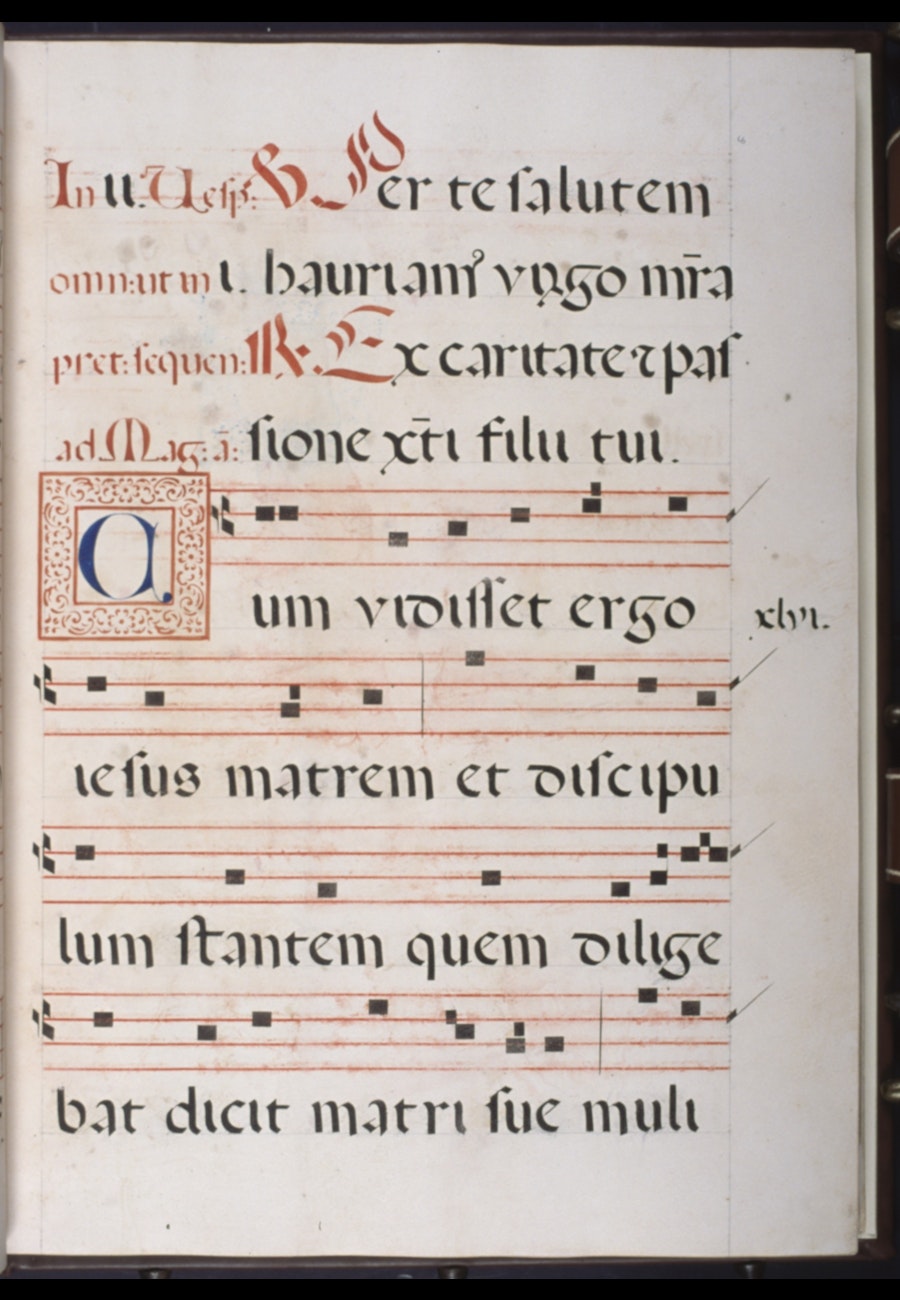 In ıı. Uesp̃: ℣. Per te salutem
omn: ut in ı. hauriamꝰ virgo mr̄a
pret: sequen: ℟. Ex caritate ⁊ pas
ad Mag: ā: sione xp̄i filii tui.
Cum vidisset ergo
xlvi.
iesus matrem et discipu
lum stantem quem dilige
bat dicit matri sue muli